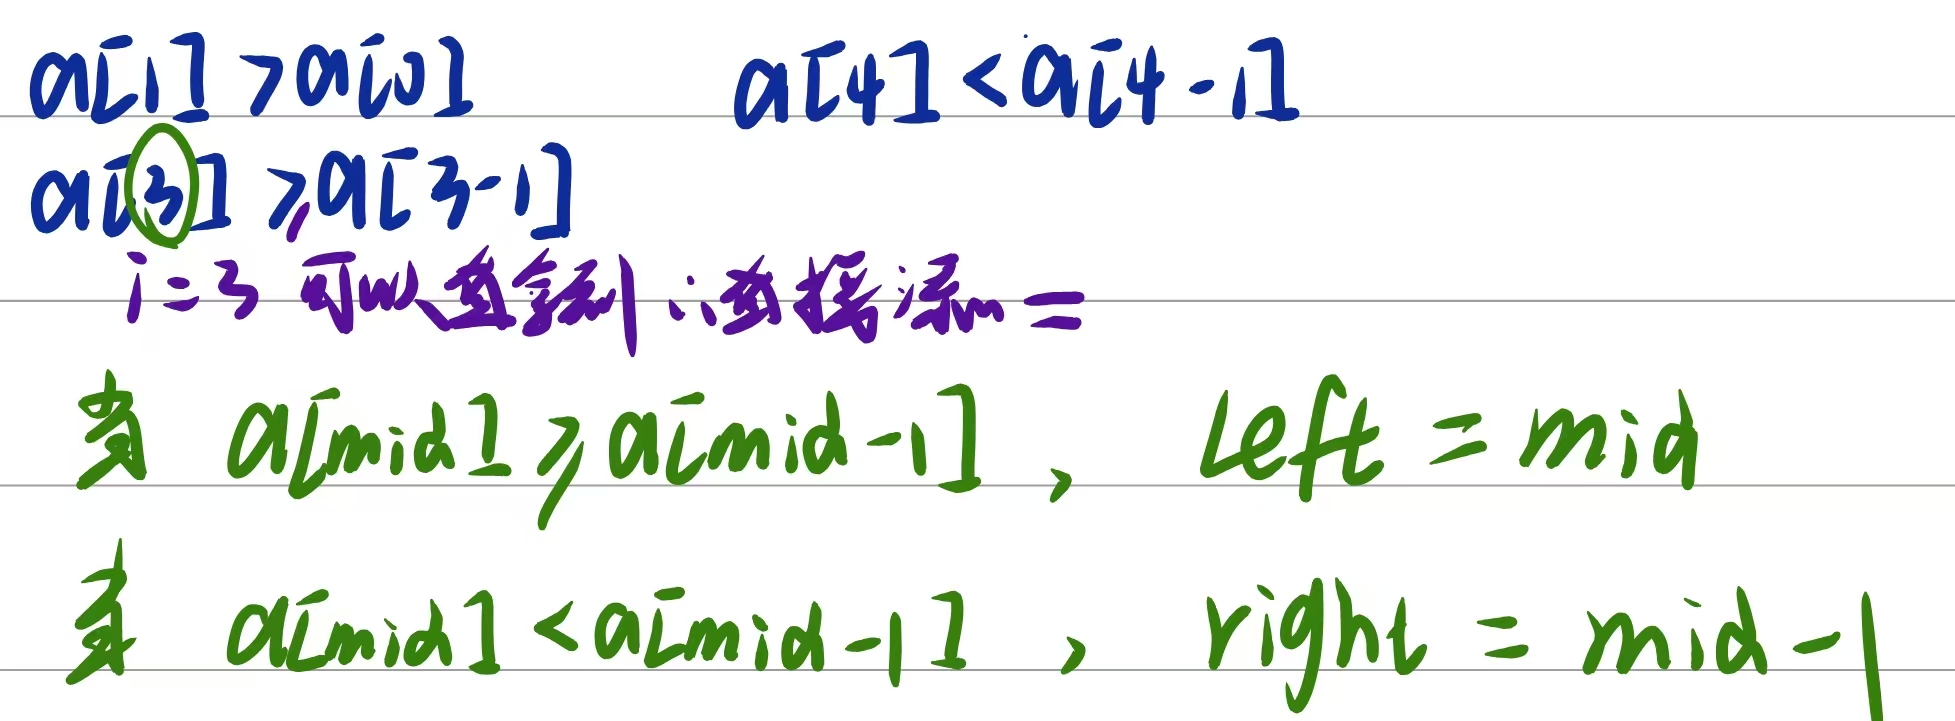 a[1] > a[0] a[4] < a[4-1]
a[3] ⩾ a[3-1]
i=3 可以直拿到 ∴ 直接添加 =
当 a[mid] ⩾ a[mid-1] , left = mid
当 a[mid] < a[mid-1] , right = mid-1